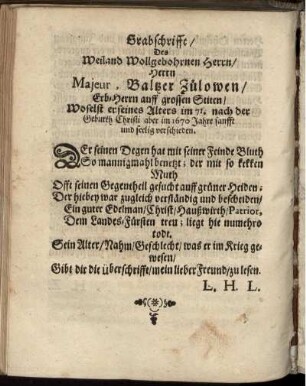 Grabschrifft/
Des
Weiland Wollgebohrnen Herrn/
Herrn
Majeur, Baltzer Zülowen/
Erb-Herrn auff grossen Stiten/
Woselst er seines Alters im 71. nach der
Gebuhrt Christi aber im 1670 Jahre sanfft
und seelig verschieden.
DEr seinen Degen hat mit seiner Feinde Bluth
So mannigmahl benetzt; der mit so kekken
Muth
Offt seinen Gegentheil gesucht auff grüner Heiden;
Der hieben war zugleich verständig und bescheiden/
Ein guter Edelman/Christ/Haußwirth/Patrior,
Dem Landes-Fürsten treu; liegt hie numehro
todt.
Sein Alter/Nahm/Geschlecht/was er im Krieg ge-
wesen/
Gibt dir die überschrifft/mein lieber Freund/zu lesen.
L. H. L.